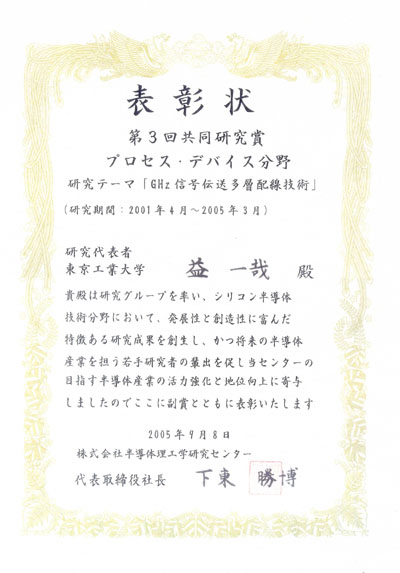 表彰状
第3回共同研究賞
プロセス・デバイス分野
研究テーマ「GHz信号伝送多層配線技術」
(研究期間：2001年4月～2005年3月)
研究代表者
東京工業大学 益 一哉 殿
貴殿は研究グループを率い、シリコン半導体
技術分野において、発展性と創造性に富んだ
特徴ある研究成果を創生し、かつ将来の半導体
産業を担う若手研究者の輩出を促し当センターの
目指す半導体産業の活力強化と地位向上に寄与
しましたのでここに副賞とともに表彰いたします
2005年9月8日
株式会社半導体理工学研究センター
代表取締役社長 下東 勝博